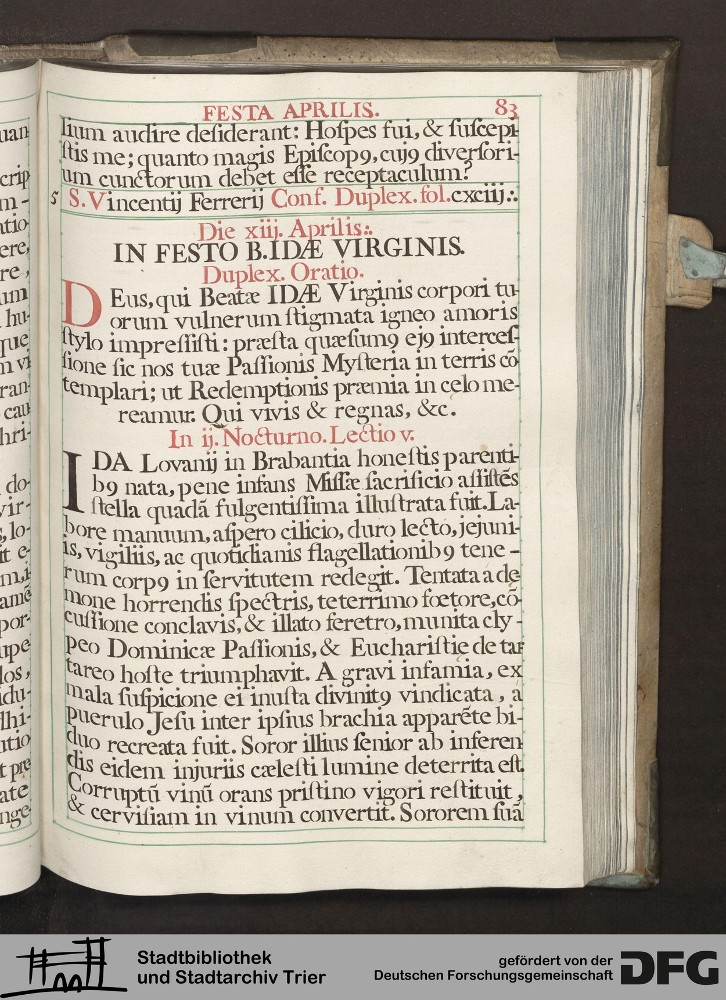 FESTA APRILIS. 83
lium audire desiderant: Hospes fui, & suscepi-
stis me; quanto magis Episcop9, cuj9 diversori-
um cunctorum debet esse receptaculum?
5 S. Vincentij Ferrerij Conf. Duplex. fol. cxciij:.
Die xiij. Aprilis:.
IN FESTO B. IDÆ VIRGINIS.
Duplex. Oratio.
DEus, qui Beatæ IDÆ Virginis corpori tu-
orum vulnerum stigmata igneo amoris
stylo impressisti: præsta quæsum9 ej9 interces-
sione sic nos tuæ Passionis Mysteria in terris cõ
templari; ut Redemptionis præmia in celo me-
reamur. Qui vivis & regnas, &c.
In ij. Nocturno. Lectio v.
IDA Lovanij in Brabantia honestis parenti-
b9 nata, pene infans Missæ sacrificio assistẽs
stella quadã fulgentissima illustrata fuit. La-
bore manuum, aspero cilicio, duro lecto, jejuni-
is, vigiliis, ac quotidianis flagellationib9 tene-
rum corp9 in servitutem redegit. Tentata a de
mone horrendis spectris, teterrimo fœtore, cõ-
cussione conclavis, & illato feretro, munita cly-
peo Dominicæ Passionis, & Eucharistie de tar
tareo hoste triumphavit. A gravi infamia, ex
mala suspicione ei inusta divinit9 vindicata, a
puerulo Jesu inter ipsius brachia apparẽte bi-
duo recreata fuit. Soror illius senior ab inferen
dis eidem injuriis cælesti lumine deterrita est.
Corruptũ vinũ orans pristino vigori restituit,
& cervisiam in vinum convertit. Sororem suã
Stadtbibliothek
und Stadtarchiv Trier
gefördert von der
Deutschen Forschungsgemeinschaft
DFG